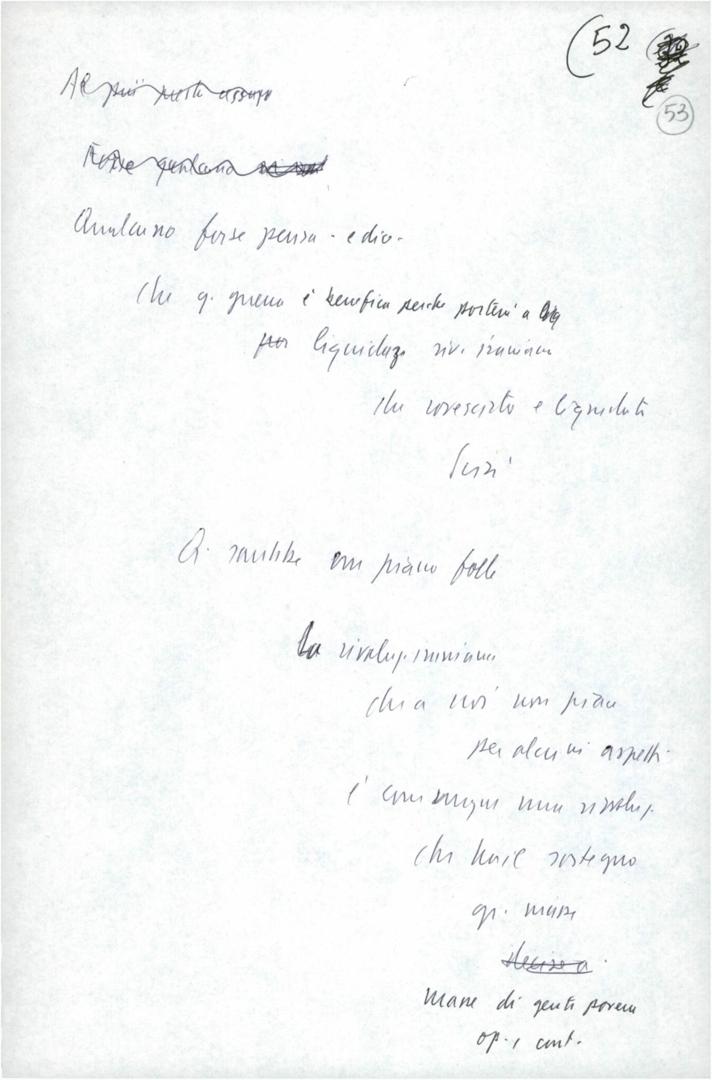 (52
53
Al più
Forse qualcuno
Qualcuno forse pensa - e dice -
che q. guerra è benefica perché porterà a
per liquidaz riv. iraniana
che rovesciato e liquidato
Scià
Q. sarebbe un piano folle
La rivoluz. iraniana
che a noi non piace
per alcuni aspetti
è comunque una rivoluz.
che ha il sostegno
gr. masse
decisa
masse di gente povera
op., cont.